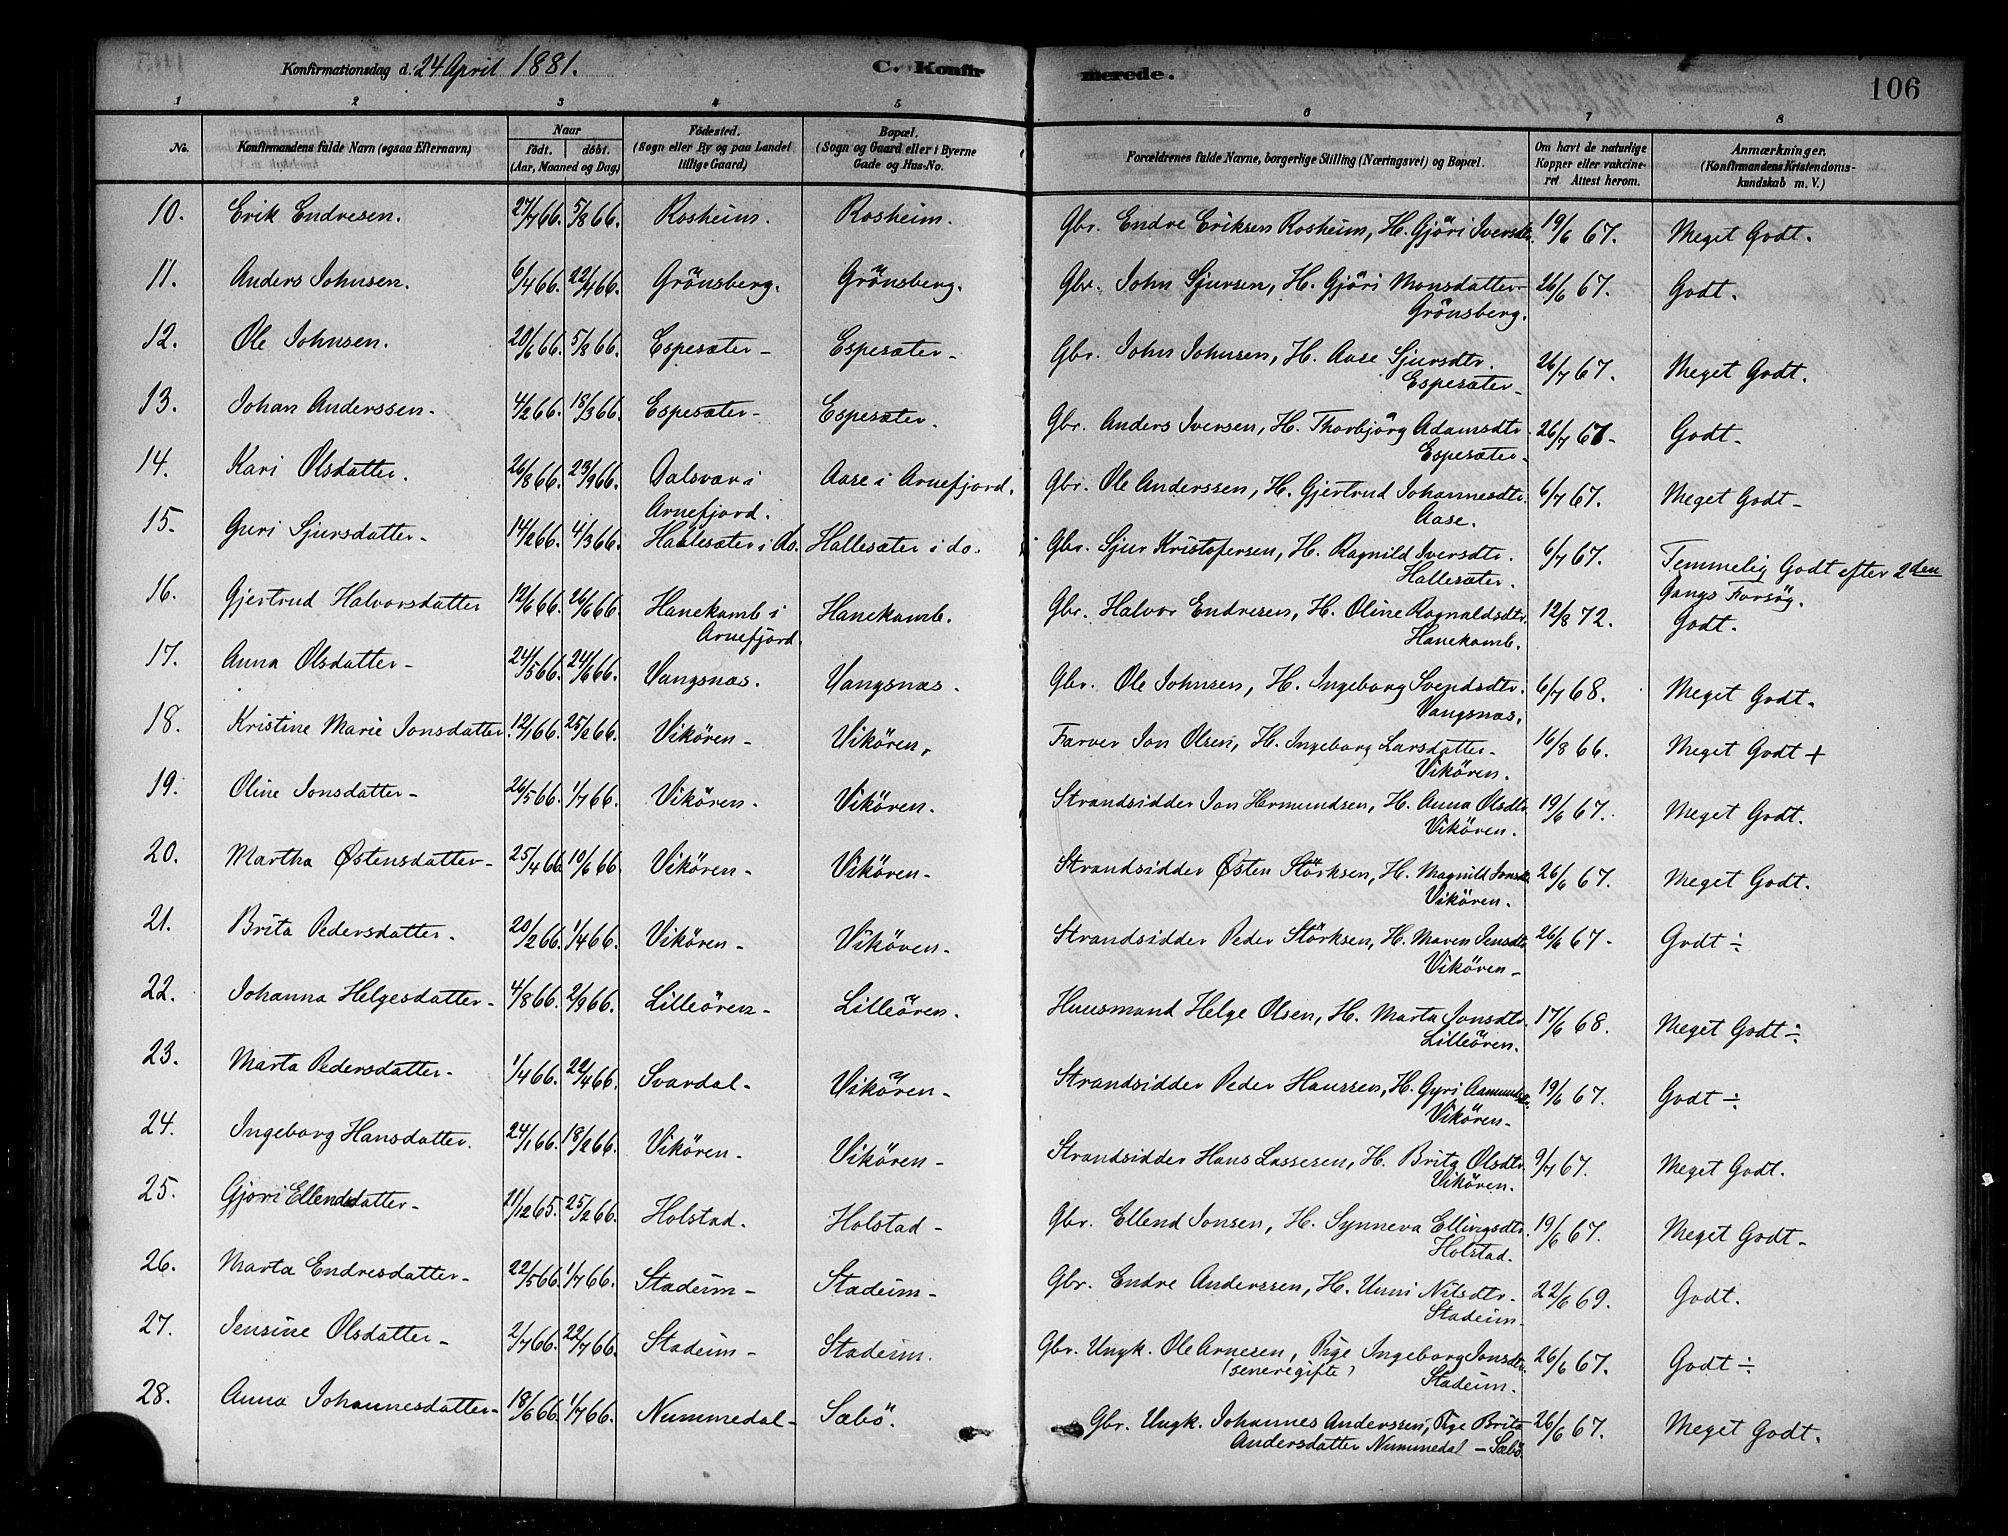 Konfirmationsdag d. 24 April 1881.
C. Konfirmerede.
106
1 2 3 4 5 6 7 8
No. Konfirmandens fulde Navn (ogsaa Efternavn) Naar født. døbt. (Aar, Maaned og Dag) Födested. (Sogn eller By og paa Landet tillige Gaard) Bopæl. (Sogn og Gaard eller i Byerne Gade og Hus-No. Forældrenes fulde Navne, borgerlige Stilling (Næringsvei) og Bopæl. Om havt de naturlige Kopper eller vakcineret Attest herom. Anmærkninger. (Konfirmandens Kristendomskundskab m. V.)
10. Erik Endresen. 27/7 66. 5/8 66. Rosheim. Rosheim. Gbr. Endre Eriksen Rosheim, H. Gjöri Iversdtr. 19/6 67. Meget Godt.
11. Anders Johnsen. 6/4 66. 22/4 66. Grönsberg. Grönsberg. Gbr. John Sjursen, H. Gjöri Monsdatter Grönsberg. 26/6 67. Godt.
12. Ole Johnsen. 20/6 66. 5/8 66. Espesæter - Espesæter - Gbr. John Johnsen, H. Aase Sjursdtr. Espesæter - 26/7 67. Meget Godt.
13. Johan Anderssen - 4/2 66. 18/3 66. Espesæter - Espesæter. Gbr. Anders Iversen, H. Thorbjörg Adamsdtr Espesæter - 26/7 67 - Godt -
14. Kari Olsdatter. 26/8 66. 23/9 66. Dalsvær i Arnefjord. Aase i Arnefjord. Gbr. Ole Anderssen, H. Gjertrud Johannesdtr. Aase. 6/7 67. Meget Godt -
15. Guri Sjursdatter - 14/2 66. 4/3 66. Hallesæter i do. Hallesæter i do. Gbr. Sjur Kristofersen, H. Ragnild Iversdtr. Hallesæter. 6/7 67. Temmelig Godt efter 2den Gangs Forsøg.
16. Gjertrud Halvorsdatter 12/6 66. 26/6 66. Hanekamb i Arnefjord. Hanekamb. Gbr. Halvor Endresen, H. Oline Ragnaldsdtr. Hanekamb. 12/8 72. Godt.
17. Anna Olsdatter - 24/5 66. 24/6 66. Vangsnæs. Vangsnæs. Gbr. Ole Johnsen, H. Ingeborg Svendsdtr. Vangsnæs. 6/7 68. Meget Godt.
18. Kristine Marie Jonsdatter. 12/1 66. 25/2 66. Vikören - Vikören, Farver Jon Olsen, H. Ingeborg Larsdatter - Vikören. 16/8 66. Meget Godt +
19. Oline Jonsdatter - 26/5 66. 1/7 66. Vikören - Vikören. Strandsidder Jon Hermundsen, H. Anna Olsdtr Vikören. 19/6 67. Meget Godt.
20. Martha Østensdatter - 25/4 66. 10/6 66. Vikören - Vikören - Strandsidder Østen Störksen, H. Magnild Jonsdtr. Vikören. 26/6 67. Meget Godt.
21. Brita Pedersdatter. 20/2 66. 1/4 66. Vikören - Viköven - Strandsidder Peder Störksen, H. Maren Jensdtr Viköven - 26/6 67 - Godt ÷
22. Johanna Helgesdatter - 4/8 66. 2/9 66. Lilleören - Lilleören. Huusmand Helge Olsen, H. Marta Jonsdtr. Lilleören. 17/6 68. Meget Godt ÷
23. Marta Pedersdatter - 1/4 66. 22/4 66. Svardal - Viköven - Strandsidder Peder Hanssen, H. Gyri Viköven - 19/6 67. Godt ÷
24. Ingeborg Hansdatter. 24/1 66. 18/2 66. Viköven - Viköven - Strandsidder Hans Lassesen, H. Brita Olsdtr. Viköven. 9/7 67. Meget Godt.
25. Gjøri Ellendsdatter - 11/12 65. 25/2 66. Holstad. Holstad - Gbr. Ellend Jonsen, H. Synneva Ellingsdtr. Holstad. 19/6 67. Meget Godt -
26. Marta Endresdatter - 22/5 66. 1/7 66. Stadeim - Stadeim - Gbr. Endre Anderssen, H. Unni Nilsdtr - Stadeim - 22/6 69. Godt.
27. Jensine Olsdatter - 2/7 66. 22/7 66. Stadeim - Stadeim. Gbr. Ungk. Ole Arnesen, Pige Ingeborg Jonsdtr (senere gifte) Stadeim. 26/6 67. Godt ÷
28. Anna Johannesdatter - 18/6 66. 1/7 66. Nummedal - Sæbö. Gbr. Ungk. Johannes Anderssen, Pige Brita Andersdatter Nummedal - Sæbö. 26/6 67. Meget Godt.